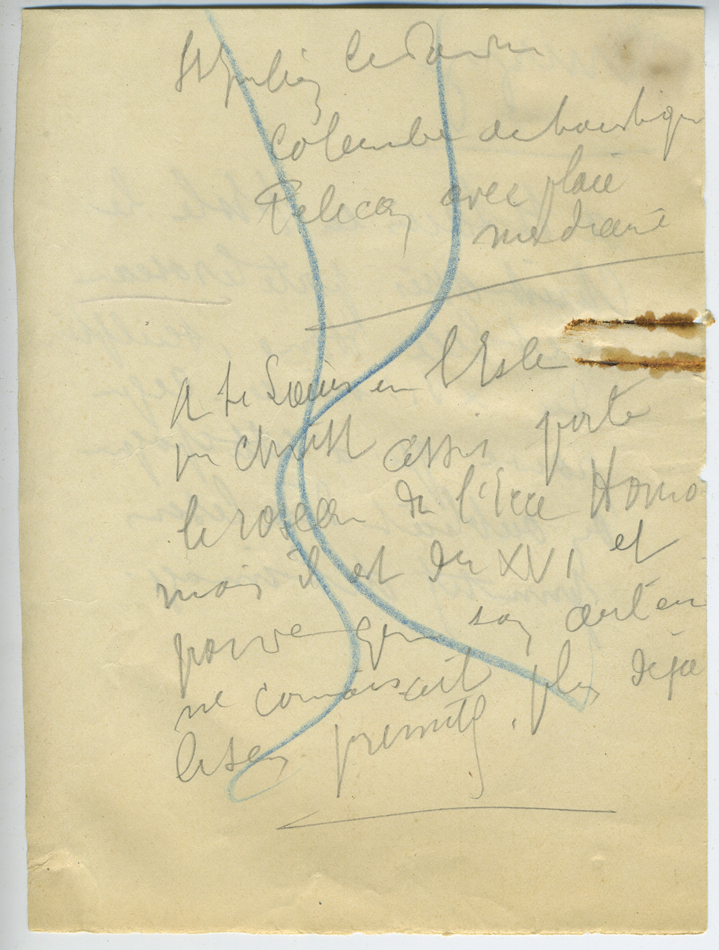 St Julien le Pauvre
Colombe eucharistique
Pelican avec plaie
mediane
A St Louis en l'Isle
un Christ assis porte
le roseau de l'Ecce Homo
mais il est du XVI et
prouve que son auteur
ne connaissait plus deja
le sens primitif.